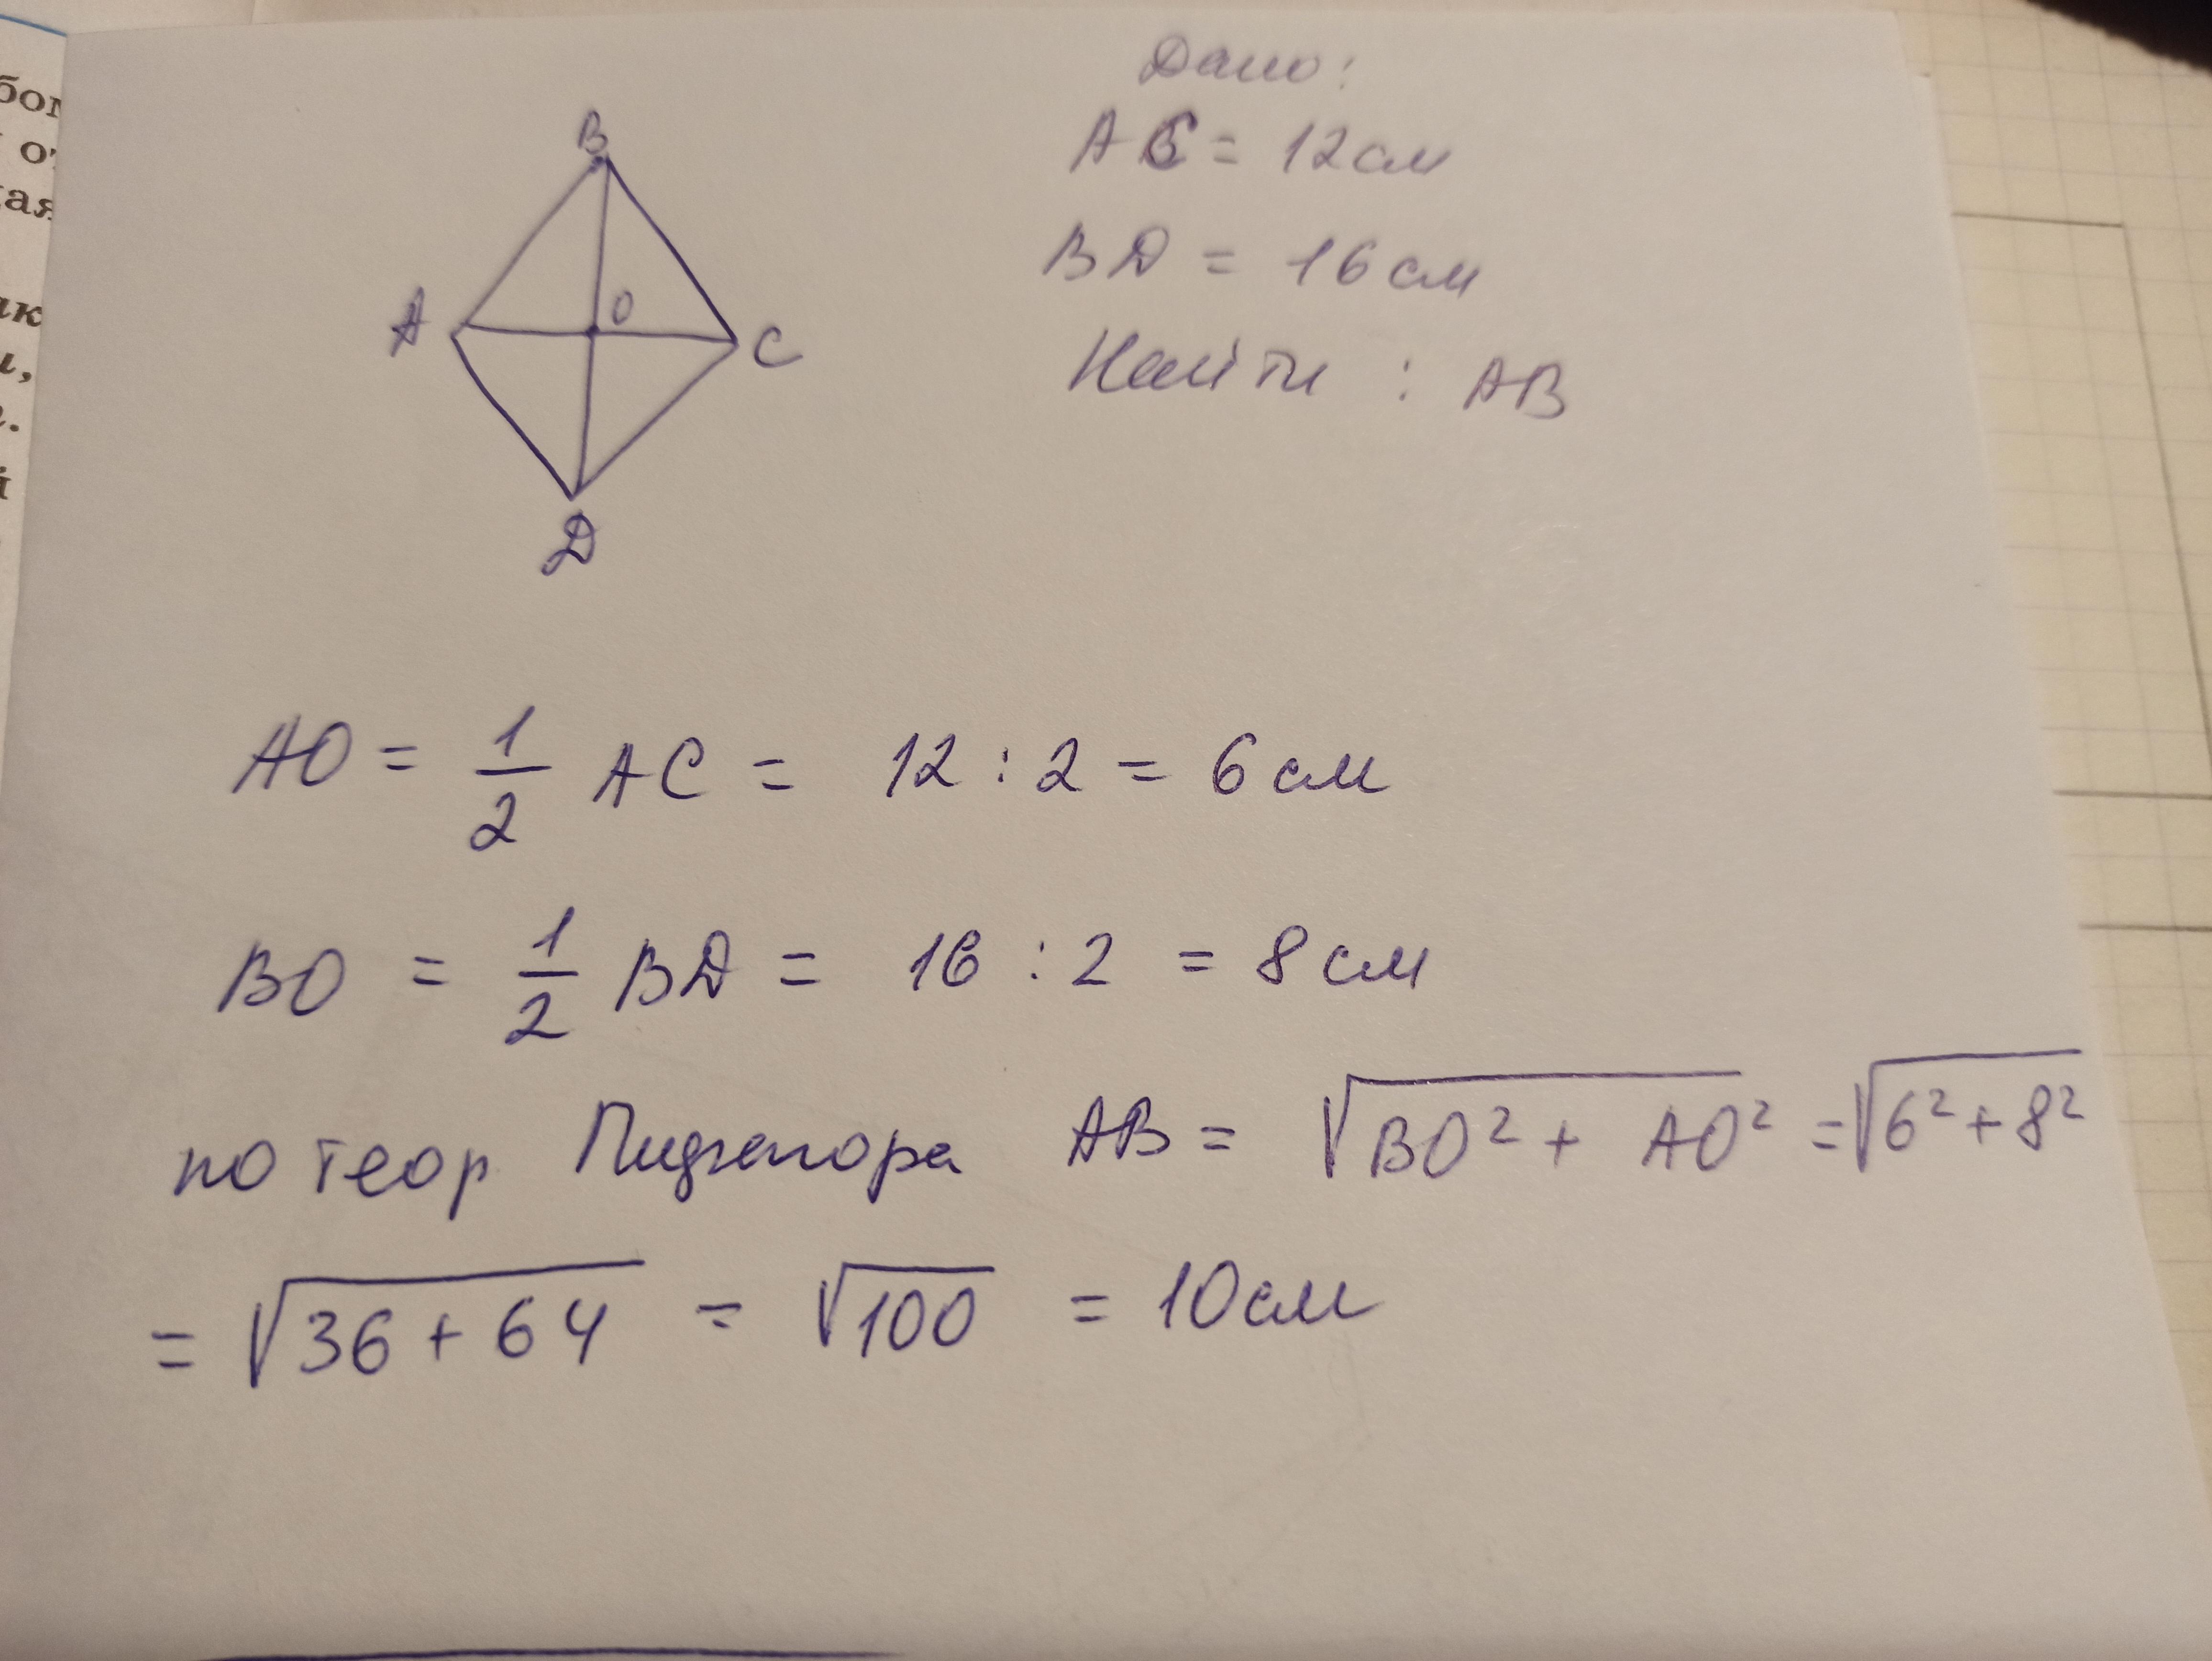 B
A
O
C
D
Дано:
AC = 12 см
BD = 16 см
Найти : AB
AO = 1/2 AC = 12 : 2 = 6 см
BO = 1/2 BD = 16 : 2 = 8 см
по теор Пифагора AB = √(BO² + AO²) = √(6² + 8²)
= √(36 + 64) = √100 = 10 см